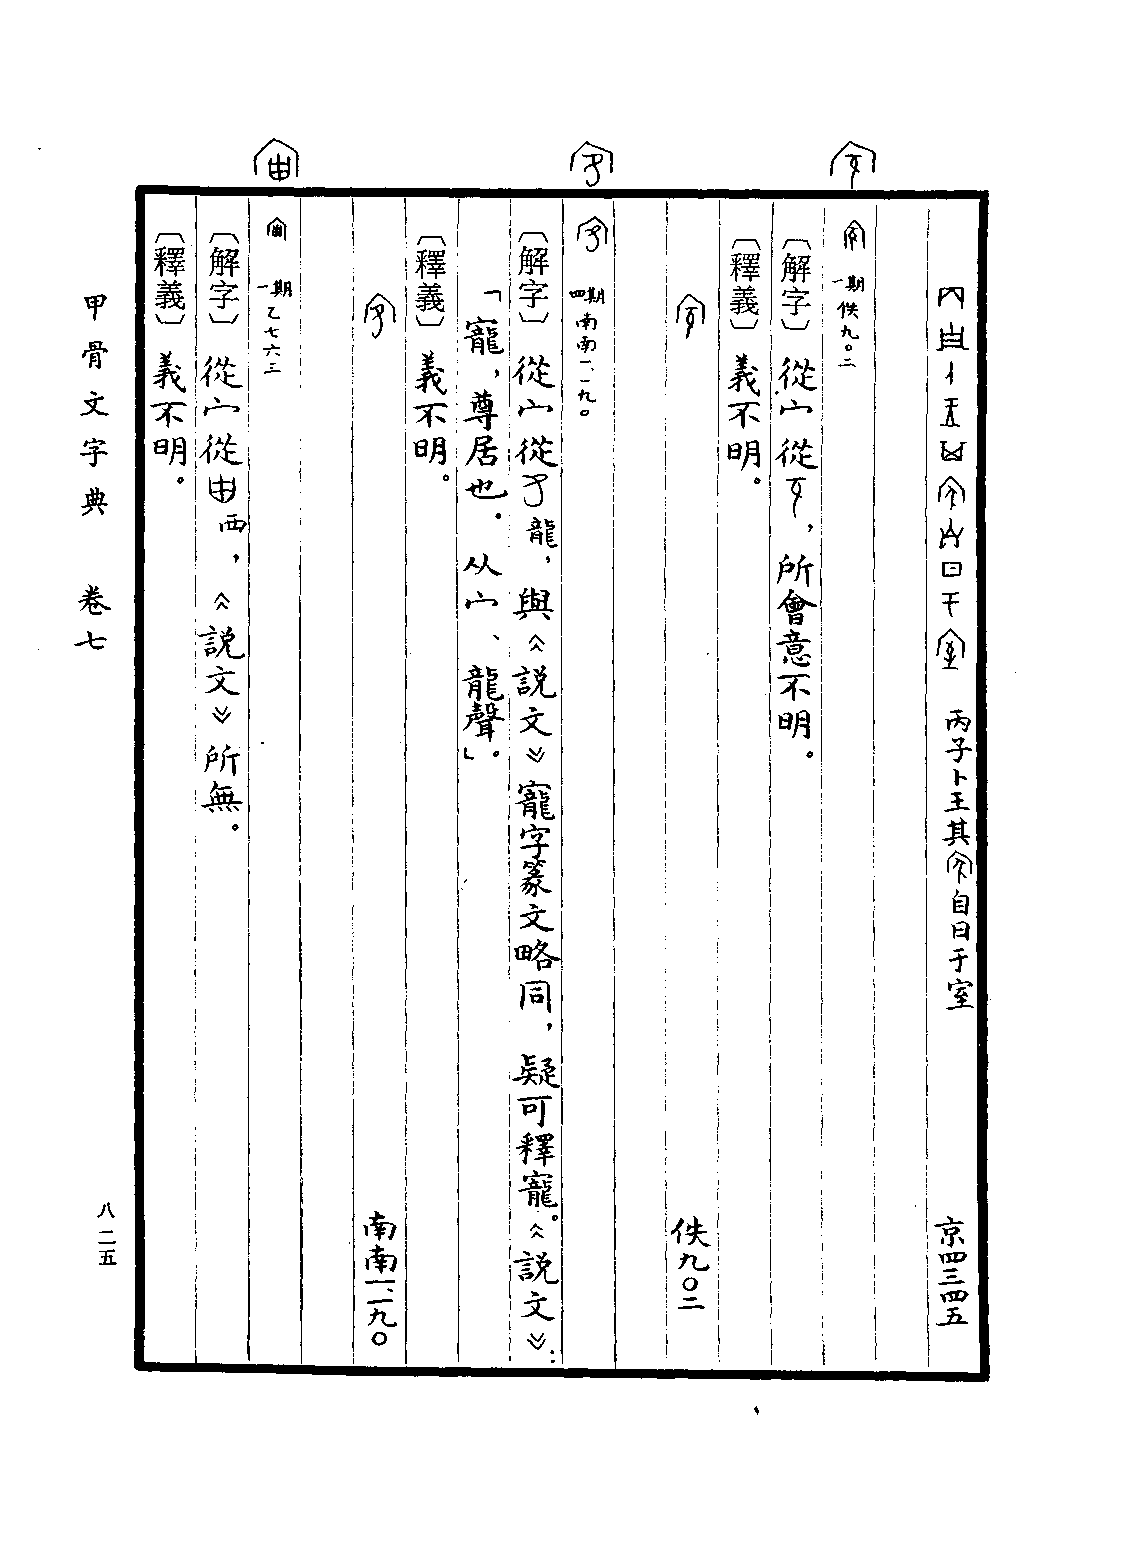 丙子卜王其自日于室 京四三四五
一期 佚九〇二
〔解字〕從宀從,所會意不明。
〔釋義〕義不明。
佚九〇二
四期 南南一、一九〇
〔解字〕從宀從龍,與《説文》寵字篆文略同,疑可釋寵。《説文》:
「寵,尊居也。从宀、龍聲」。
〔釋義〕義不明。
南南一、一九〇
一期 乙七六三
〔解字〕從宀從西,《説文》所無。
〔釋義〕義不明。
甲骨文字典 卷七
八二五